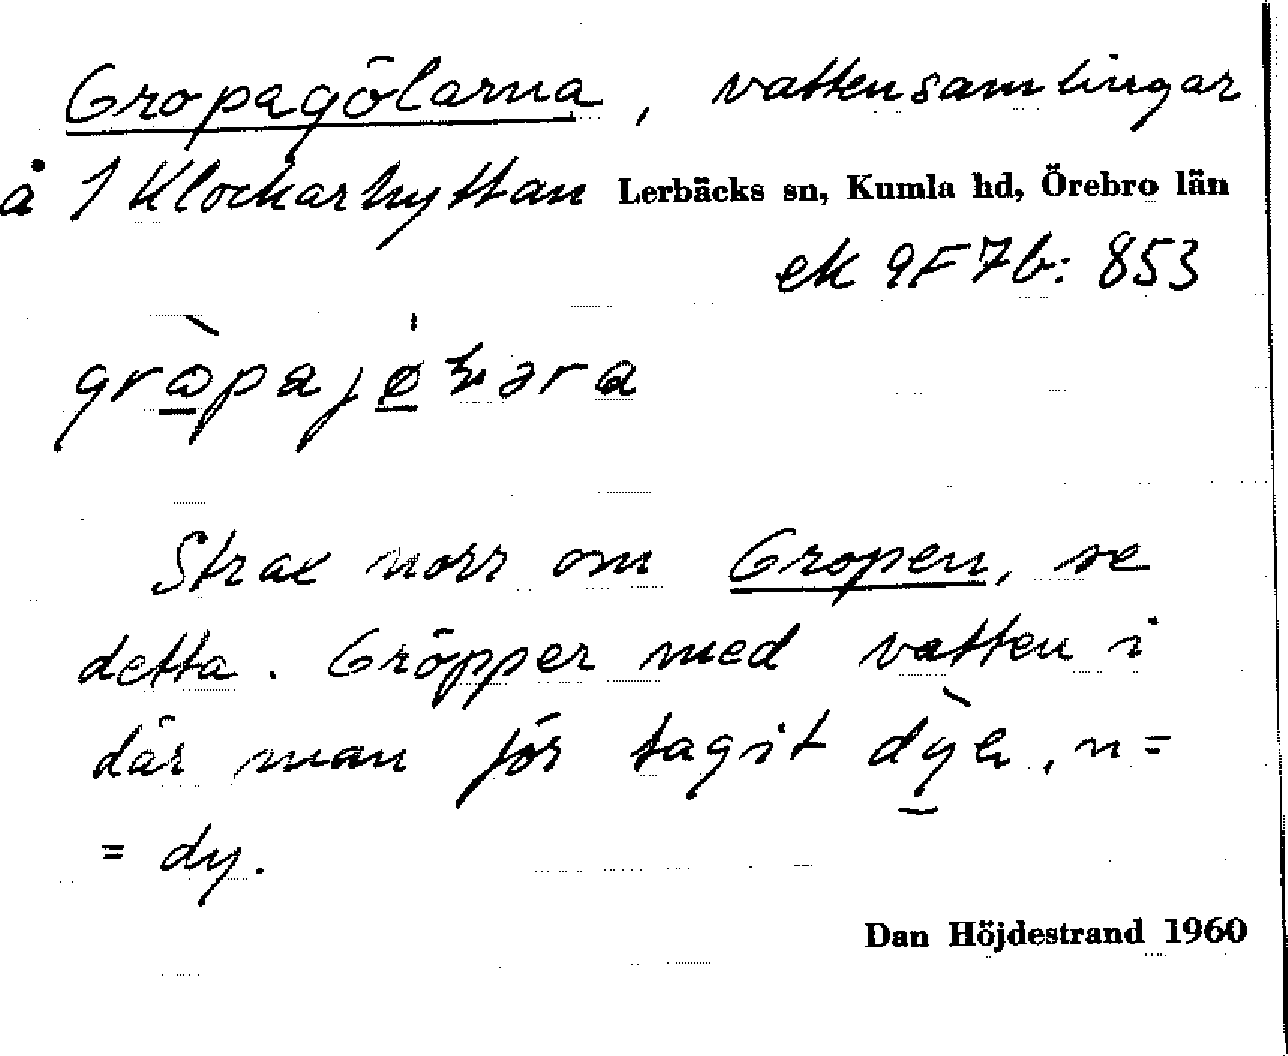 Gropagölarna, vattensamlingar
å 1 Klockarhyttan Lerbäcks sn, Kumla hd, Örebro län
ek 9F7b: 853
Strax norr om Gropen, se
detta. Gröpper med vatten i
där man för tagit dỳɳ, n =
= dy.
Dan Höjdestrand 1960